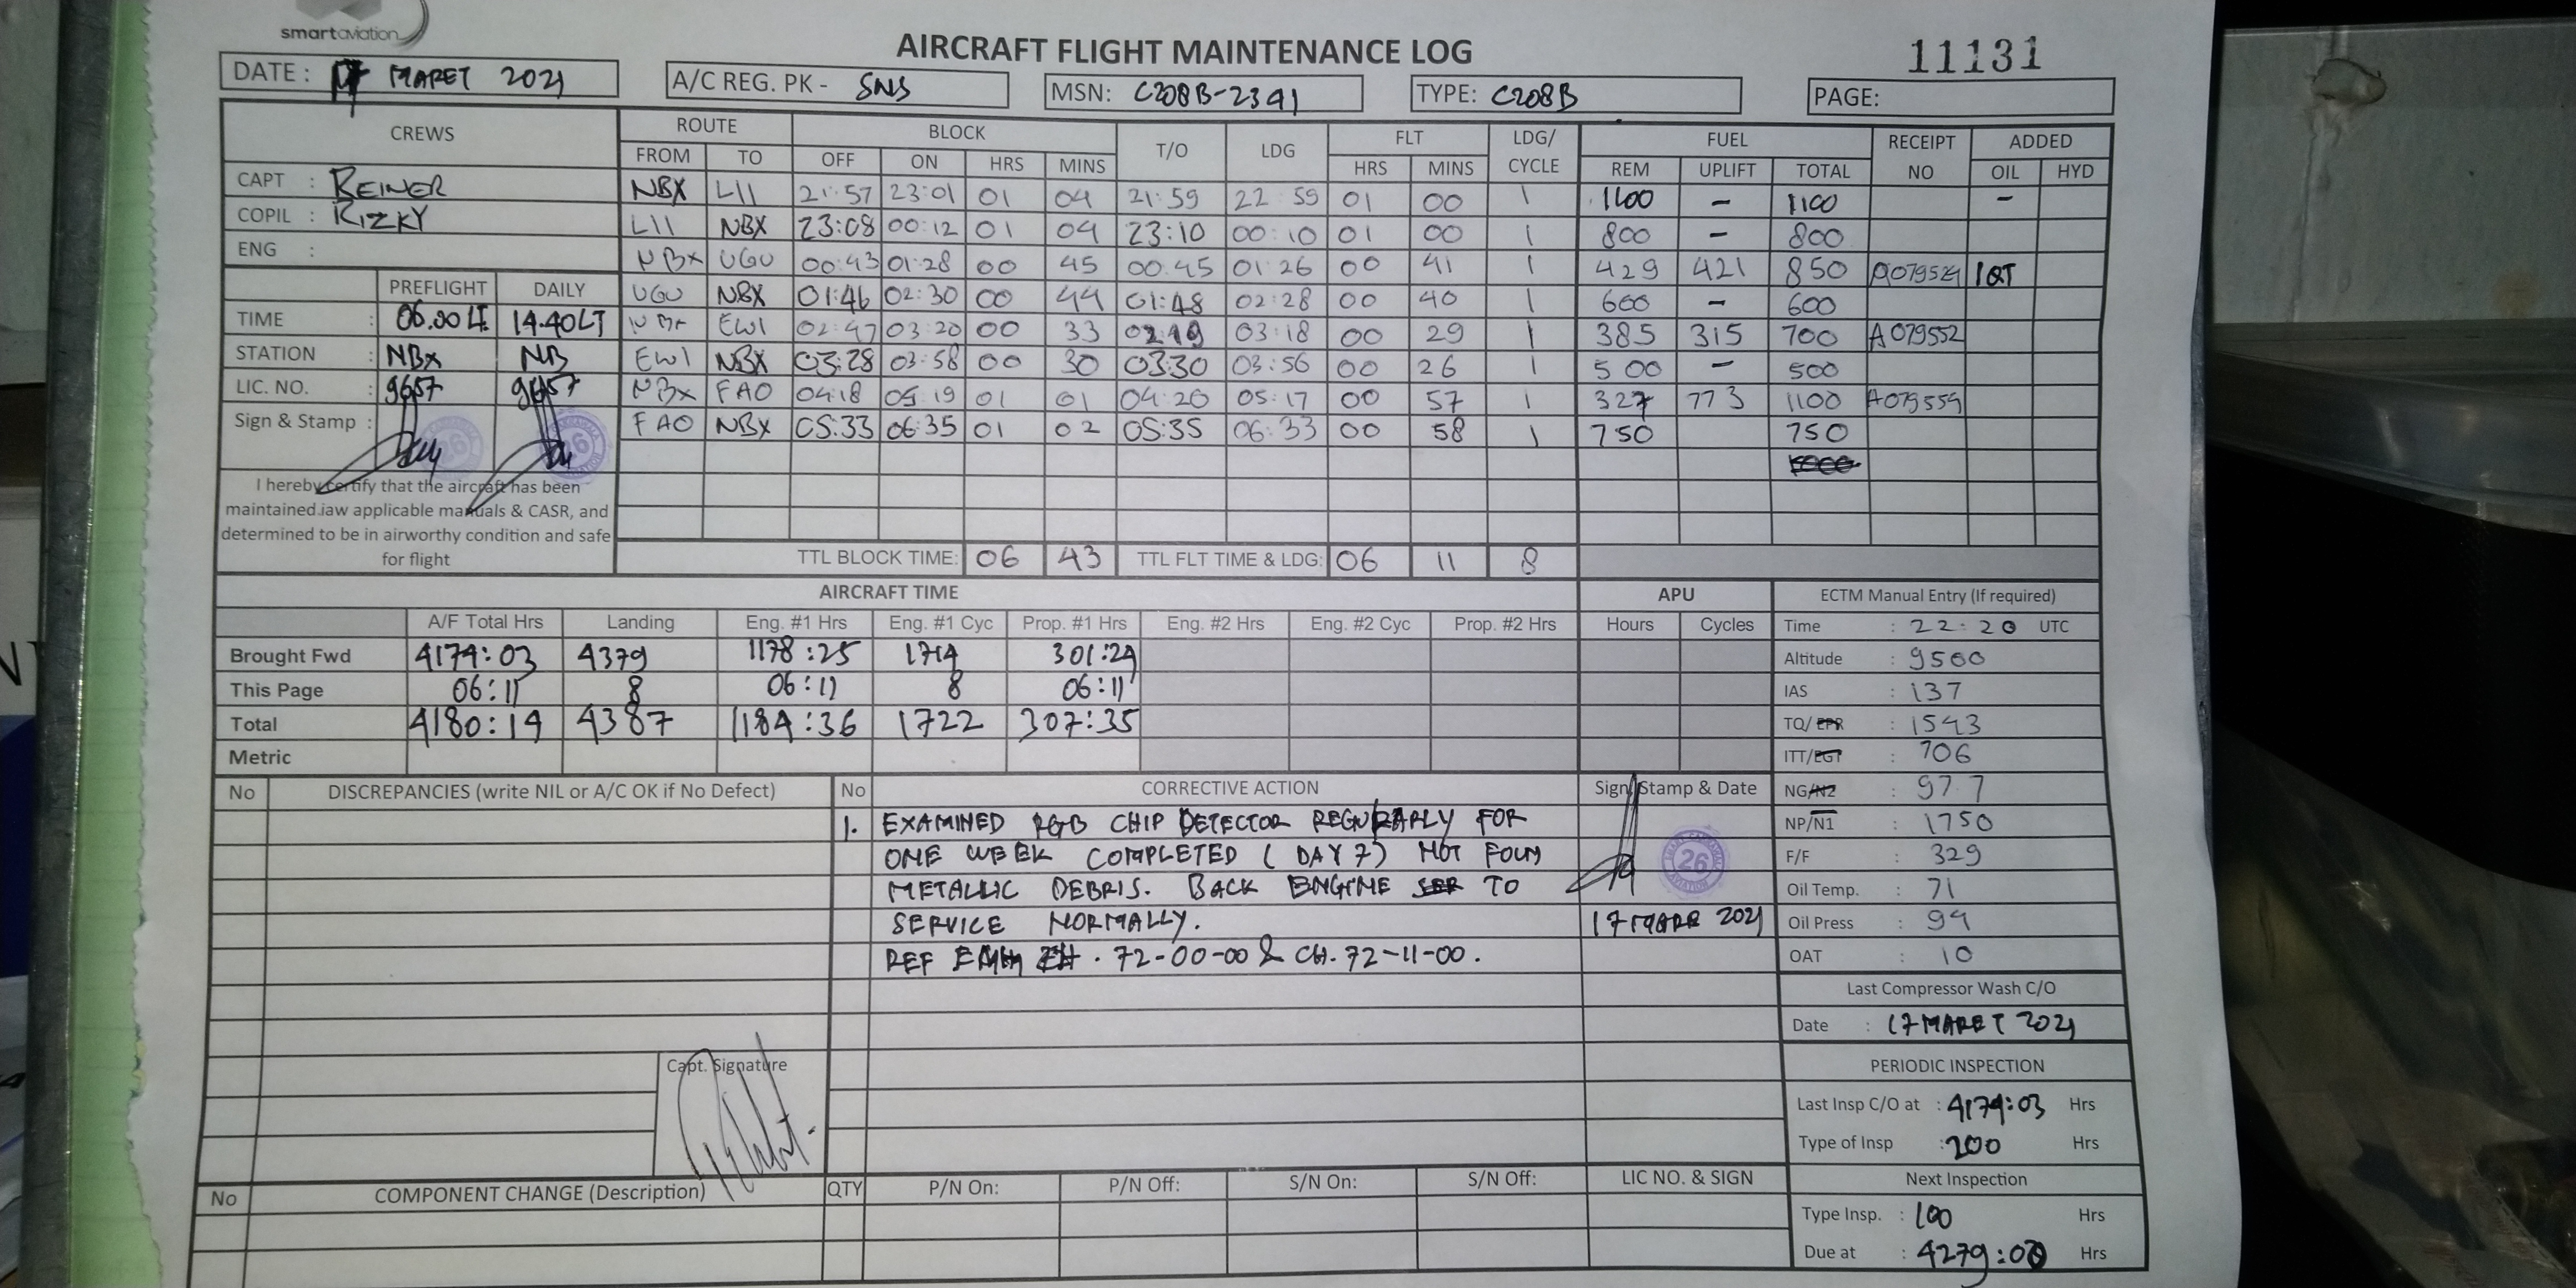 smartaviation
AIRCRAFT FLIGHT MAINTENANCE LOG
11131
DATE : 17 MARET 2021
A/C REG. PK - SNS
MSN: C208B-2391
TYPE: C208B
PAGE:
CREWS
ROUTE BLOCK T/O LDG FLT LDG/ CYCLE FUEL RECEIPT NO ADDED
FROM TO OFF ON HRS MINS HRS MINS REM UPLIFT TOTAL OIL HYD
CAPT : REINER
COPIL : RIZKY
ENG :
NBX LII 21:57 23:01 01 04 21:59 22:59 01 00 1 1100 - 1100 -
LII NBX 23:08 00:12 01 04 23:10 00:10 01 00 1 800 - 800
NBX UGU 00:43 01:28 00 45 00:45 01:26 00 41 1 429 421 850 A079529 1QT
UGU NBX 01:46 02:30 00 44 01:48 02:28 00 40 1 600 - 600
NBX EWI 02:47 03:20 00 33 03:18 00 29 1 385 315 700 A079552
EWI NBX 03:28 03:58 00 30 03:30 03:56 00 26 1 500 - 500
NBX FAO 04:18 05:19 01 01 04:20 05:17 00 57 1 327 773 1100 A079559
FAO NBX 05:33 06:35 01 02 05:35 06:33 00 58 1 750 750
PREFLIGHT DAILY
TIME : 06.00 LT 14.40 LT
STATION : NBX NB
LIC. NO. : 9657 9657
Sign & Stamp :
I hereby certify that the aircraft has been
maintained.iaw applicable manuals & CASR, and
determined to be in airworthy condition and safe
for flight
TTL BLOCK TIME: 06 43 TTL FLT TIME & LDG: 06 11 8
AIRCRAFT TIME
APU
A/F Total Hrs Landing Eng. #1 Hrs Eng. #1 Cyc Prop. #1 Hrs Eng. #2 Hrs Eng. #2 Cyc Prop. #2 Hrs Hours Cycles
Brought Fwd 4174:03 4379 1178:25 1714 301:24
This Page 06:11 8 06:11 8 06:11
Total 4180:14 4387 1184:36 1722 307:35
Metric
ECTM Manual Entry (If required)
Time : 22:20 UTC
Altitude : 9500
IAS : 137
TQ/EPR : 1543
ITT/EGT : 706
NG/N2 : 97.7
NP/N1 : 1750
F/F : 329
Oil Temp. : 71
Oil Press : 94
OAT : 10
Last Compressor Wash C/O
Date : 17 MARET 2021
PERIODIC INSPECTION
Last Insp C/O at : 4174:03 Hrs
Type of Insp : 200 Hrs
Next Inspection
Type Insp. : 100 Hrs
Due at : 4279:00 Hrs
No DISCREPANCIES (write NIL or A/C OK if No Defect)
No CORRECTIVE ACTION Sign, Stamp & Date
1. EXAMINED RGB CHIP DETECTOR REGURARLY FOR
ONE WEEK COMPLETED ( DAY 7) NOT FOUN
METALLIC DEBRIS. BACK ENGINE TO
SERVICE NORMALLY.
REF EMM . 72-00-00 & CH. 72-11-00.
26
17 MARE 2021
Capt. Signature
No COMPONENT CHANGE (Description) QTY P/N On: P/N Off: S/N On: S/N Off: LIC NO. & SIGN